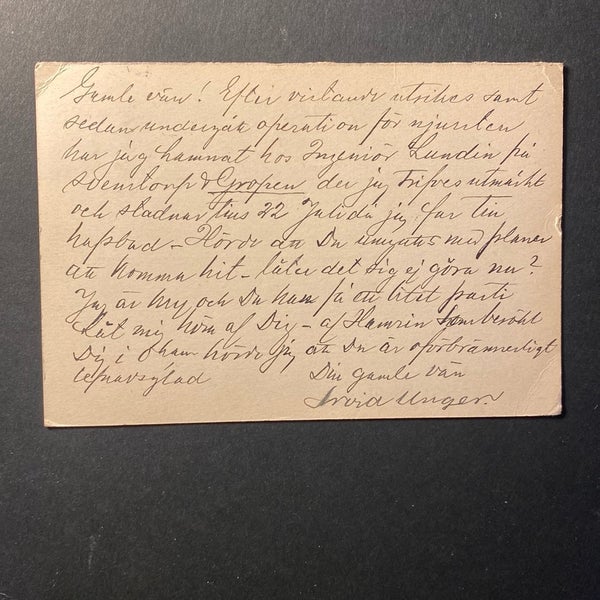 Gamle vän! Efter vistande utrikes samt
sedan undergått operation för njursten
har jag hamnat hos Ingeniör Lundin på
Svenstorp & Gropen der jag trifves utmärkt
och stadnar tills 22 Juli då jag far till
hafsbad – Hörde att Du umgåtts med planer
att komma hit – låter det sig ej göra nu?
Jag är kry och Du kan få ett litet parti
Låt mig höra af Dig – af Hamrin som besökt
Dig i hörde jag att Du är oförbrännerligt
lefnadsglad Din gamle vän
Arvid Unger.